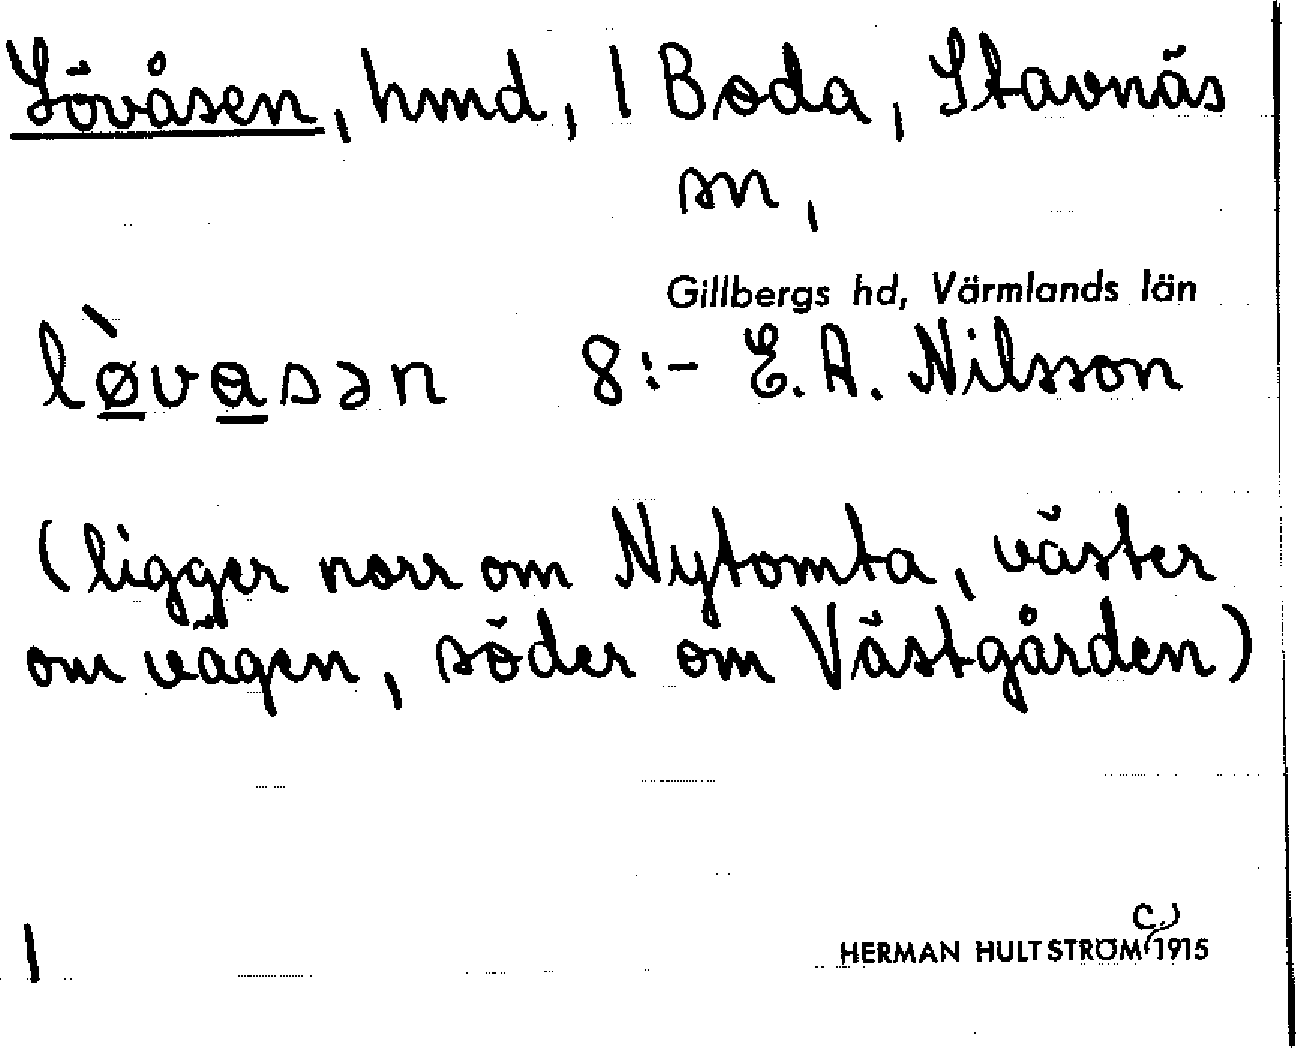 Lövåsen, hmd, 1 Boda, Stavnäs
sn,
Gillbergs hd, Värmlands län
lø̲̀va̲sən 8:- E. A. Nilsson
(ligger norr om Nytomta, väster
om vägen, söder om Västgården)
1
HERMAN HULTSTRÖM C. 1915